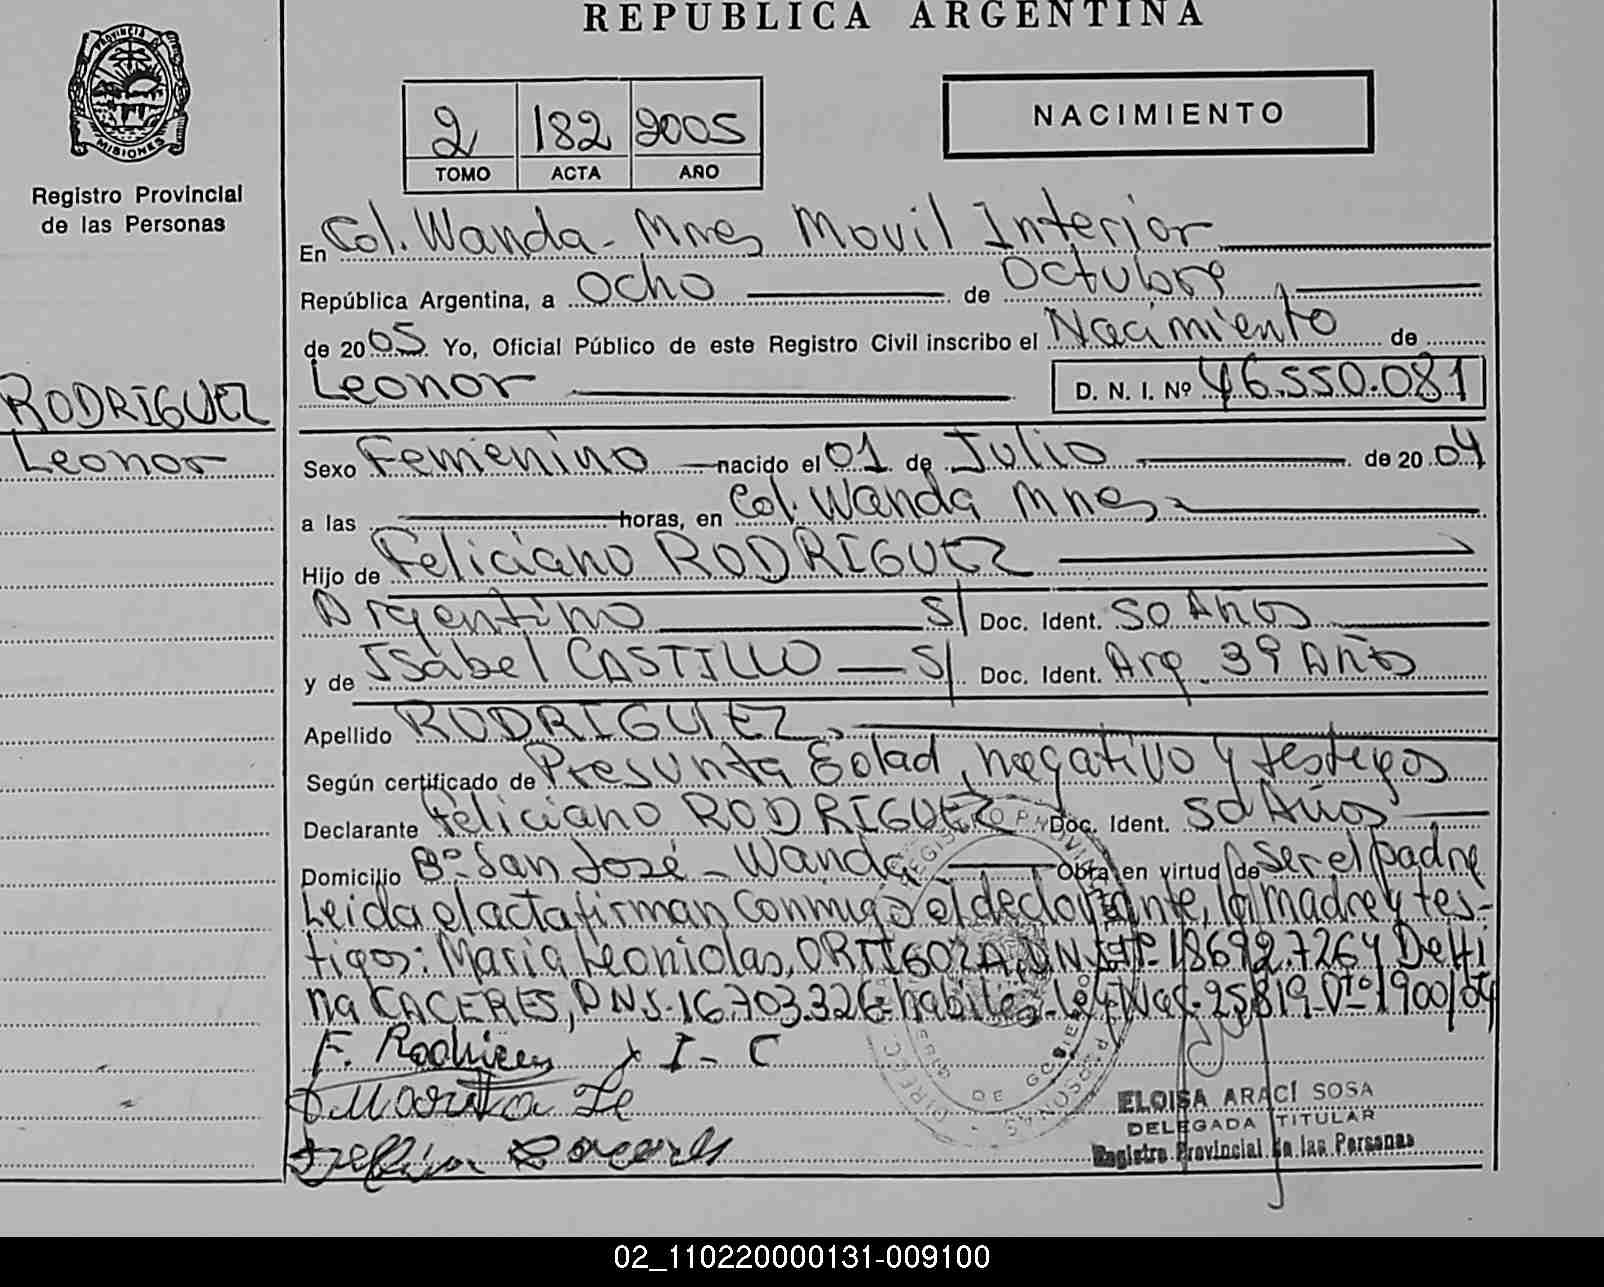 REPUBLICA ARGENTINA
PROVINCIA DE
MISIONES
Registro Provincial
de las Personas
2 182 2005
TOMO ACTA AÑO
NACIMIENTO
En Col. Wanda - Mnes Movil Interior
República Argentina, a Ocho de Octubre
de 2005 Yo, Oficial Público de este Registro Civil inscribo el Nacimiento de
Leonor D. N. I. Nº 46.550.081
RODRIGUEZ
Leonor
Sexo Femenino nacido el 01 de Julio de 2004
a las horas, en Col. Wanda Mnes
Hijo de Feliciano RODRIGUEZ
Argentino S/ Doc. Ident. 50 Años
y de Isabel CASTILLO S/ Doc. Ident. Arg. 39 Años
Apellido RODRIGUEZ
Según certificado de Presunta Edad, negativo y testigos
Declarante Feliciano RODRIGUEZ Doc. Ident. 50 Años
Domicilio Bº San José - Wanda Obra en virtud de Ser el padre
Leida el acta firman Conmigo el declarante, la madre y tes-
tigos: Maria Leonidas, ORTIGOZA, DNI Nº 18.692.726 y Delfi
na CACERES, DNI. 16.703.326 habiles. Ley Nac. 25819. Dto 1900/04
F. Rodriguez x I - C
Delfina Caceres
ELOISA ARACÍ SOSA
DELEGADA TITULAR
Registro Provincial de las Personas
02_110220000131-009100